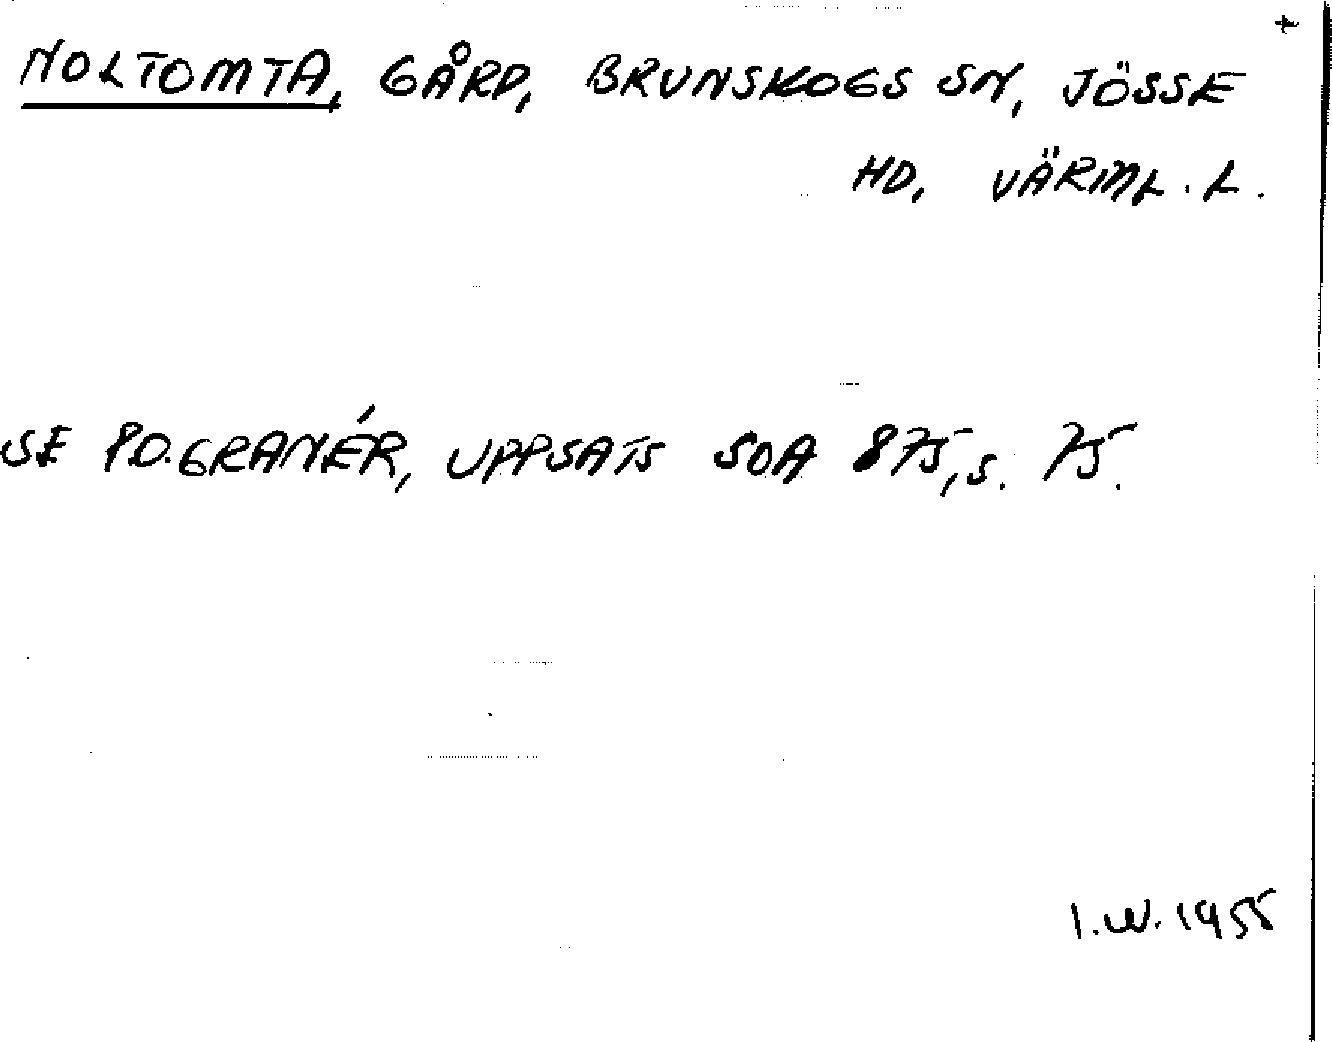 +
NOLTOMTA, GÅRD, BRUNSKOGS SN, JÖSSE
HD, VÄRML. L.
SE P.O.GRANÉR, UPPSATS SOA 875, S. 75.
I.W. 1955